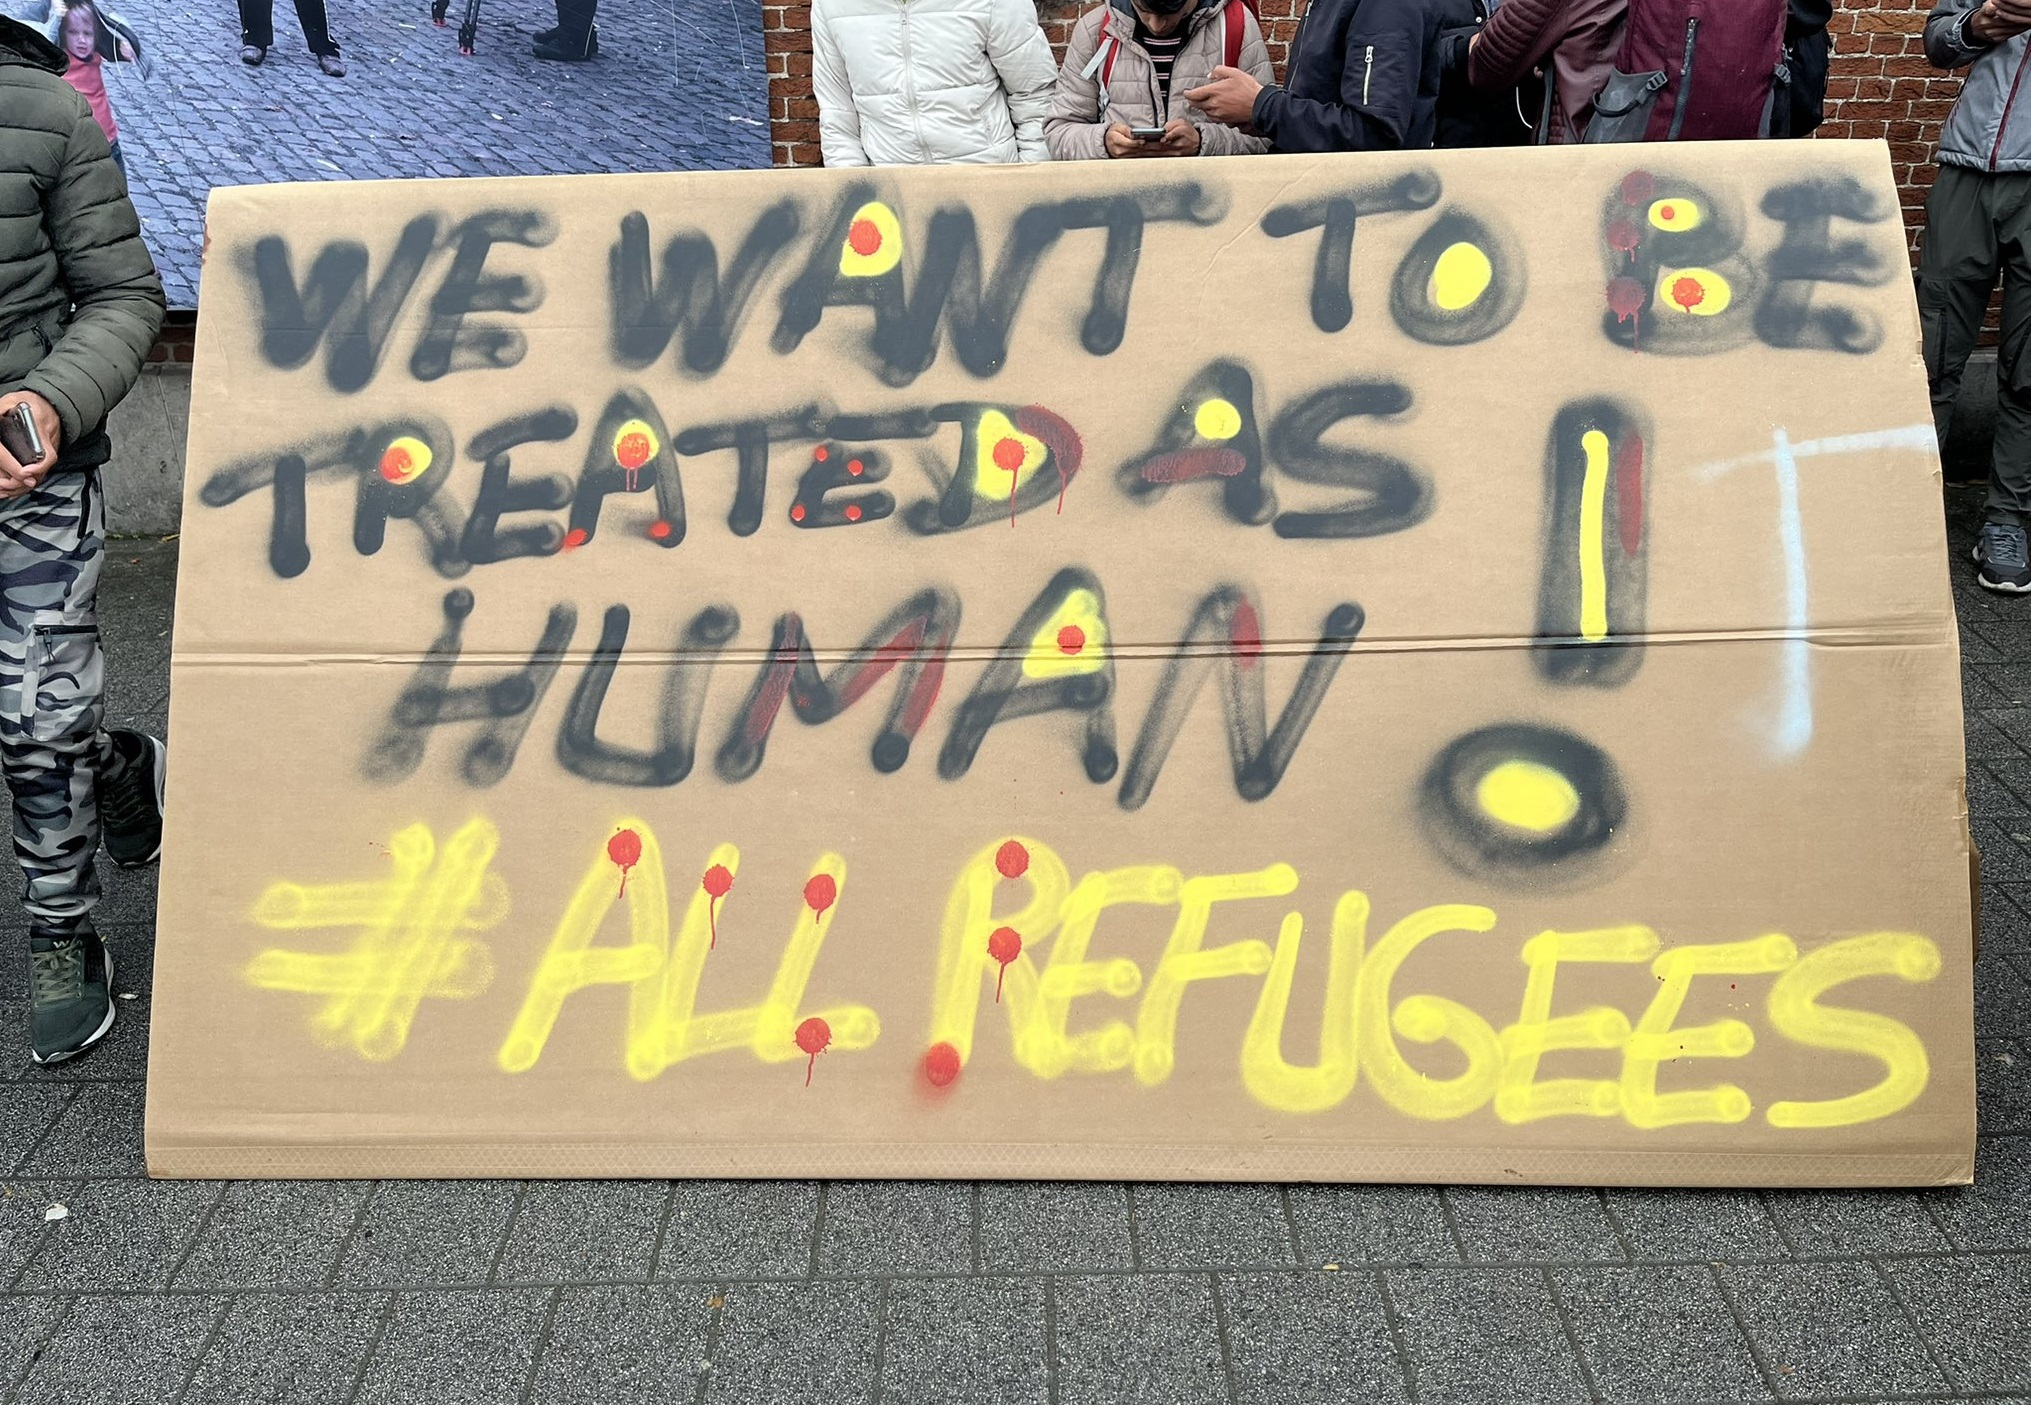 WE WANT TO BE
TREATED AS
HUMAN !
# ALL REFUGEES